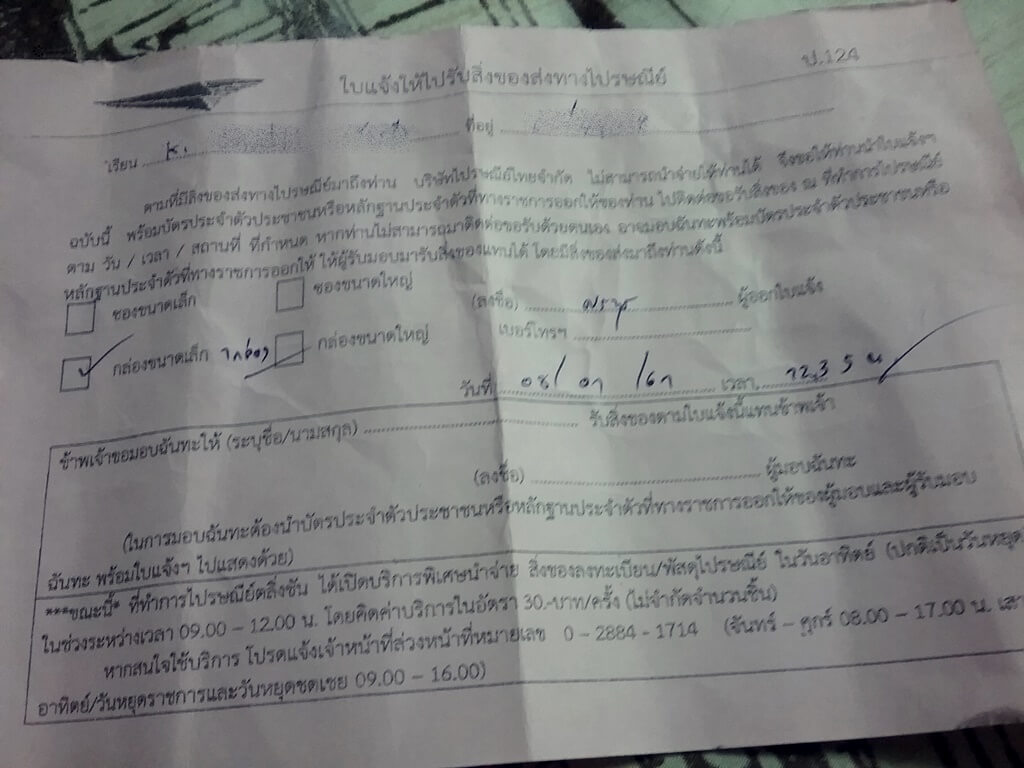 ป.124
ใบแจ้งให้ไปรับสิ่งของส่งทางไปรษณีย์
เรียน ที่อยู่
ตามที่มีสิ่งของส่งทางไปรษณีย์มาถึงท่าน บริษัทไปรษณีย์ไทยจำกัด ไม่สามารถนำจ่ายให้ท่านได้ จึงขอให้ท่านนำใบแจ้งฯ
ฉบับนี้ พร้อมบัตรประจำตัวประชาชนหรือหลักฐานประจำตัวที่ทางราชการออกให้ของท่าน ไปติดต่อขอรับสิ่งของ ณ ที่ทำการไปรษณีย์
ตาม วัน / เวลา / สถานที่ ที่กำหนด หากท่านไม่สามารถมาติดต่อขอรับด้วยตนเอง อาจมอบฉันทะพร้อมบัตรประจำตัวประชาชนหรือ
หลักฐานประจำตัวที่ทางราชการออกให้ ให้ผู้รับมอบมารับสิ่งของแทนได้ โดยมีสิ่งของส่งมาถึงท่านดังนี้
ซองขนาดเล็ก ซองขนาดใหญ่ (ลงชื่อ) ผู้ออกใบแจ้ง
กล่องขนาดเล็ก 1 กล่อง กล่องขนาดใหญ่ เบอร์โทรฯ
วันที่ 08/ 01 /61 เวลา 12.35 น
ข้าพเจ้าขอมอบฉันทะให้ (ระบุชื่อ/นามสกุล) รับสิ่งของตามใบแจ้งนี้แทนข้าพเจ้า
(ลงชื่อ) ผู้มอบฉันทะ
(ในการมอบฉันทะต้องนำบัตรประจำตัวประชาชนหรือหลักฐานประจำตัวที่ทางราชการออกให้ของผู้มอบและผู้รับมอบ
ฉันทะ พร้อมใบแจ้งฯ ไปแสดงด้วย)
***ขณะนี้* ที่ทำการไปรษณีย์ตลิ่งชัน ได้เปิดบริการพิเศษนำจ่าย สิ่งของลงทะเบียน/พัสดุไปรษณีย์ ในวันอาทิตย์ (ปกติเป็นวันหยุด)
ในช่วงระหว่างเวลา 09.00 – 12.00 น. โดยคิดค่าบริการในอัตรา 30.-บาท/ครั้ง (ไม่จำกัดจำนวนชิ้น)
หากสนใจใช้บริการ โปรดแจ้งเจ้าหน้าที่ล่วงหน้าที่หมายเลข 0 – 2884 - 1714 (จันทร์ – ศุกร์ 08.00 – 17.00 น. เสา
อาทิตย์/วันหยุดราชการและวันหยุดชดเชย 09.00 – 16.00)